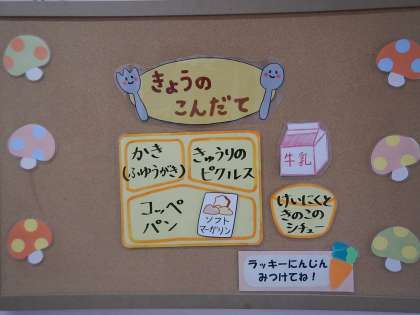 きょうの
こんだて
かき
(ふゆうがき)
きゅうりの
ピクルス
牛乳
コッペ
パン
ソフト
マーガリン
けいにくと
きのこの
シチュー
ラッキーにんじん
みつけてね!